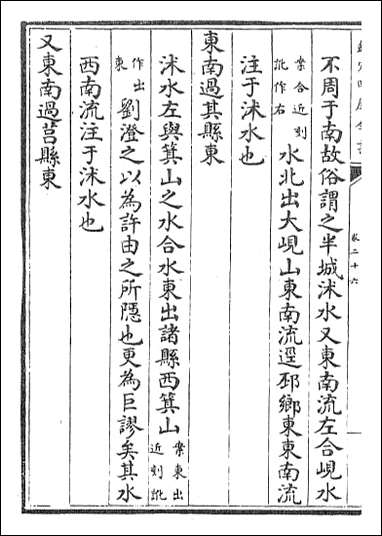 卷二十六
不周于南故俗謂之半城沭水又東南流左合峴水
案合近刻
訛作右
水北出大峴山東南流逕邳鄉東東南流
注于沭水也
東南過其縣東
沭水左與箕山之水合水東出諸縣西箕山
案東出
近刻訛
作出
東
劉澄之以為許由之所隱也更為巨謬矣其水
西南流注于沭水也
又東南過莒縣東